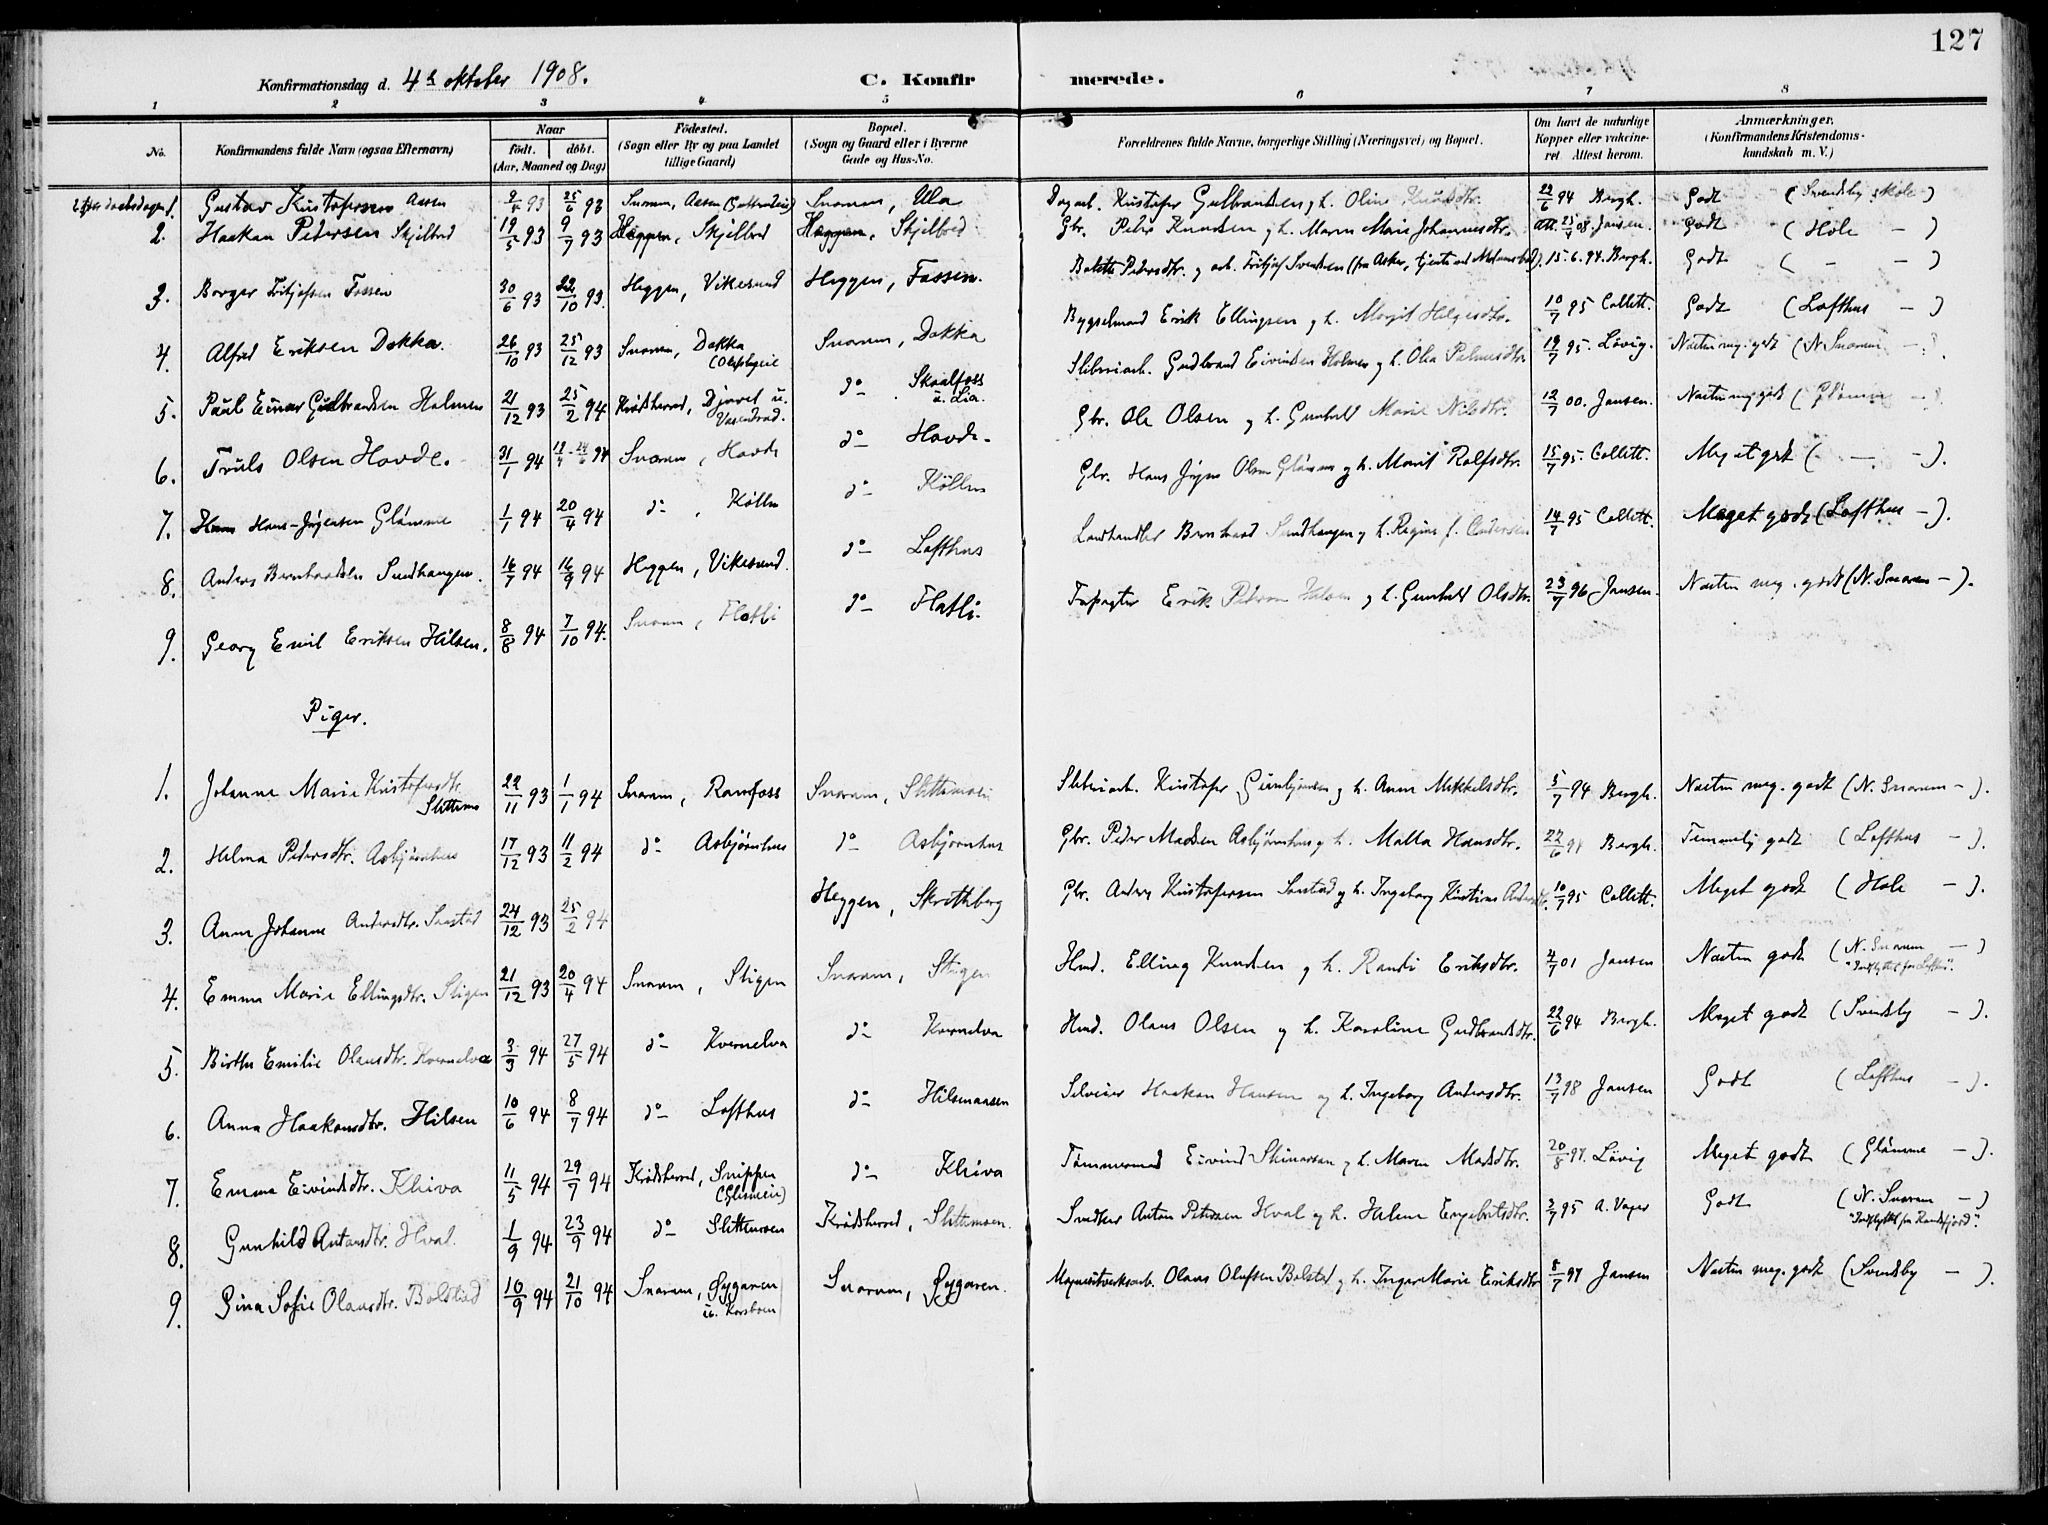 127
Konfirmationsdag d. 4de oktober 1908. C. Konfirmerede.
1 2 3 4 5 6 7 8
No. Konfirmandens fulde Navn (ogsaa Efternavn) Naar født. døbt. (Aar, Maaned og Dag) Fødested. (Sogn eller By og paa Landet tillige Gaard) Bopæl. (Sogn og Gaard eller i Byerne Gade og Hus-No. Forældrenes fulde Navne, borgerlige Stilling (Næringsvei) og Bopæl. Om havt de naturlige Kopper eller vakcineret. Attest herom. Anmærkninger. (Konfirmandens Kristendomskundskab m. V.)
1. Gustav Kristofersen Aasen 93 25/6 93 Snarum, Aasen Snarum, Ula Dagarb. Kristofer Gulbrandsen og h. Oline Knudsdtr. 22/6 94 Bergh. Godt (Svendsby skole)
2. Haakan Pedersen Skjelbred 19/5 93 9/7 93 Heggen, Skjelbred Heggen, Skjelbred Gbr. Peder Knudsen og h. Maren Marie Johannesdtr. Att. 25/7 08. Jansen. Godt (Hole -)
3. Borger Fritjofsen Fossen 30/6 93 22/10 93. Heggen, Vikesund Heggen, Fossen. Bolette Pedersdtr. og arb. Fritjof Svendsen (fra Asker, 15.6.94. Bergh. Godt ( - - )
4. Alfred Eriksen Dokka. 26/10 93 25/12 93 Snarum, Dokka Snarum, Dokka Bygselmand Erik Ellingsen og h. Margit Helgesdtr. 10/7 95 Collett. Godt (Lofthus -)
5. Paul Einar Gudbrandsen Holmen 21/12 93 25/2 94 Krødsherred, Djuvet u. do Skaalfoss u. Lia. Sliberiarb. Gudbrand Eivindsen Holmen og h. Olea Palmesdtr. 19/7 95. Løvig. Næsten meg. godt (N. Snarum -).
6. Truls Olsen Hovde. 31/1 94 94 Snarum, Hovde do Hovde. Gbr. Ole Olsen og h. Gunhild Marie Nilsdtr. 12/7 00. Jansen. Næsten meg. godt (Glømme -).
7. Hans Jørgensen Glømme 1/1 94 20/4 94 do, Køllen do Køllen Gbr. Hans Jørgen Olsen Glømme og h. Marit Rolfsdtr. 15/7 95. Collett. Meget godt ( - -).
8. Anders Bernhardsen Sundhaugen. 16/7 94 16/9 94 Heggen, Vikesund. do Lofthus Landhandler Bernhard Sundhaugen og h. Regine f. Andersen 14/7 95 Collett. Meget godt (Lofthus -).
9. Georg Emil Eriksen Hilsen. 8/8 94 7/10 94. Snarum, Flatli do Flatli. Erik Pedersen Hilsen og h. Gunhild Olsdtr. 23/7 96 Jansen. Næsten meg. godt (N. Snarum -).
Piger.
1. Johanne Marie Kristofersdtr. Slettemo 22/11 93 1/1 94 Snarum, Ramfoss Snarum, Slettemoen Sliberiarb. Kristofer Gunbjørnsen og h. Anne Mikkelsdtr. 5/7 94 Bergh. Næsten meg. godt (N. Snarum -).
2. Helma Pedersdtr. Asbjørnhus 17/12 93 11/2 94 do Asbjørnhus do Asbjørnhus Gbr. Peder Madsen Asbjørnhus og h. Malla Hansdtr. 22/6 94 Bergh. Temmelig godt (Lofthus -).
3. Anne Johanne Andersdtr. Sonstad 24/12 93 25/2 94 Heggen, Skrethberg Gbr. Anders Kristofersen Sonstad og h. Ingeborg Kristine 10/7 95 Collett. Meget godt (Hole -).
4. Emma Marie Ellingsdtr. Stigen 21/12 93 20/4 94 Snarum, Stigen Snarum, Stigen Hmd. Elling Knudsen og h. Randi Eriksdtr. 4/7 01 Jansen Næsten godt (N. Snarum -) "Indflyttet fra Lofthus".
5. Birthe Emilie Olausdtr. Kvernelva 3/3 94 27/5 94 do Kvernelva do Kvernelva Hmd. Olaus Olsen og h. Karoline Gudbrandsdtr. 22/6 94 Bergh. Meget godt (Svendsby -).
6. Anna Haakonsdtr. Hilsen 10/6 94 8/7 94 do Lofthus do Hilsenaasen Selveier Haakon Hansen og h. Ingeborg Andersdtr. 13/7 98 Jansen Godt (Lofthus -).
7. Emma Eivindsdtr. Khiva 11/5 94 29/7 94 Krødsherred, Snippen do Khiva Tømmermand Eivind Steinarsen og h. Maren Madsdtr. 20/8 97. Løvig Meget godt (Glømme -).
8. Gunhild Antonsdtr. Hval. 1/9 94 23/9 94 do Slettemoen Krødsherred, Slettemoen. Snedker Anton Petersen Hval og h. Helene Engebretsdtr. 2/7 95 A. Vager Godt (N. Snarum -) "Indflyttet fra Randsfjord".
9. Gina Sofie Olausdtr. Bolstad 10/9 94 21/10 94 Snarum, Øygaren u. Korsboen Snarum, Øygaren. Magnesitverksarb. Olaus Olufsen Bolstad og h. Inger Marie Eriksdtr 8/7 97 Jansen Næsten meg. godt (Svendsby -).